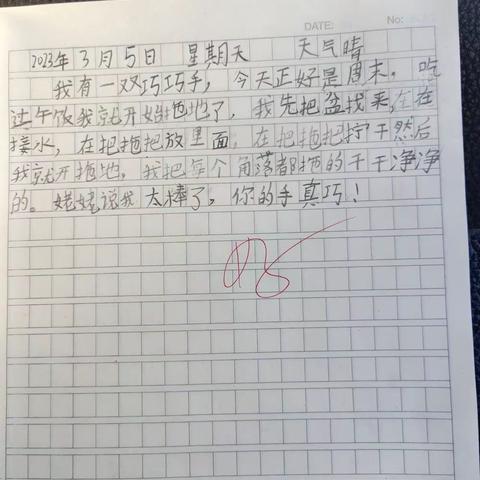 DATE: No:
2023年3月5日 星期天 天气晴
我有一双巧巧手，今天正好是周末，吃
过午饭我就开始拖地了，我先把盆找来，在
接水，在把拖把放里面，在把拖把拧干然后
我就开拖地，我把每个角落都拖的干干净净
的。姥姥说我太棒了，你的手真巧！